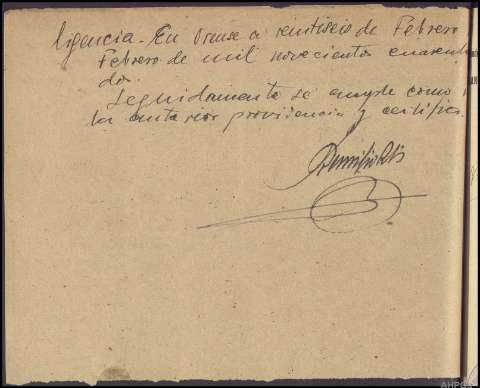 ligencia.- En Orense a veintiseis de Febrero
Febrero de mil novecientos cuarenta
dos.
Seguidamente se cumple como
la anterior providencia y certifico.
AHPO